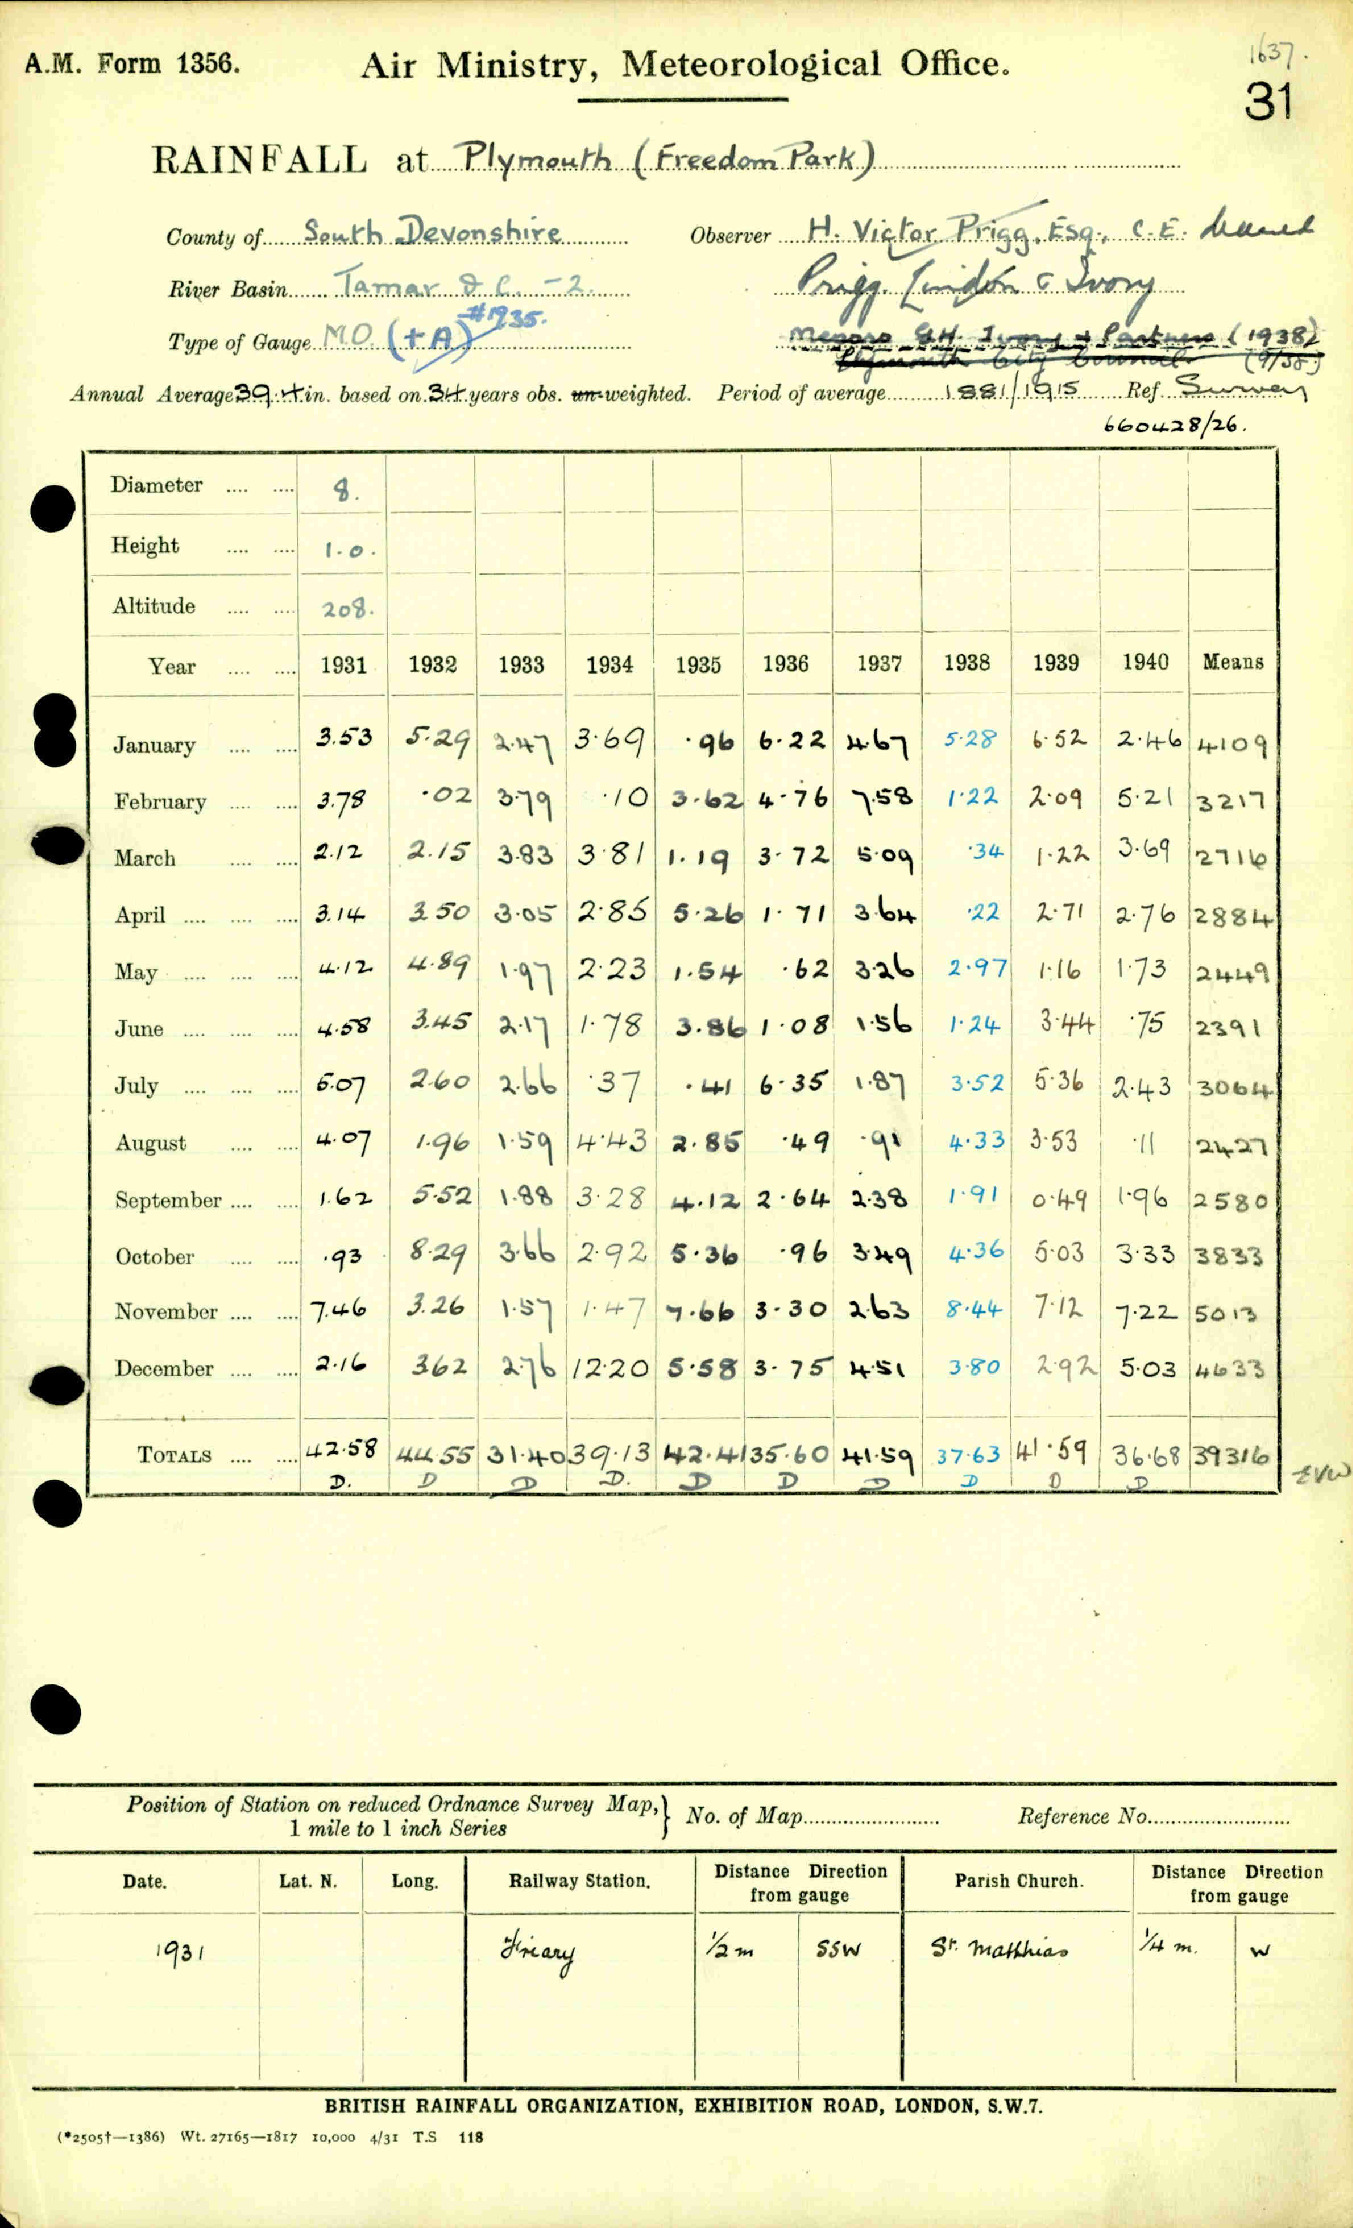 A.M. Form 1356.
Air Ministry, Meteorological Office.
1637.
31
RAINFALL at Plymouth (Freedom Park)
County of South Devonshire Observer H. Victor Prigg, Esq., C.E.
River Basin Tamar & C. -2. Prigg, Lindon & Ivory
Type of Gauge M.O (+A) #1935. Messrs G.H. Ivory & Partners (1938)
Plymouth City Council (9/38)
Annual Average 39.4 in. based on 34 years obs. un-weighted. Period of average 1881/1915 Ref. Survey
660428/26.
Diameter .... .... 8.
Height .... .... 1.0.
Altitude .... .... 208.
Year .... .... 1931 1932 1933 1934 1935 1936 1937 1938 1939 1940 Means
January .... .... 3.53 5.29 2.47 3.69 .96 6.22 4.67 5.28 6.52 2.46 4109
February .... .... 3.78 .02 3.79 .10 3.62 4.76 7.58 1.22 2.09 5.21 3217
March .... .... 2.12 2.15 3.83 3.81 1.19 3.72 5.09 .34 1.22 3.69 2716
April .... .... .... 3.14 3.50 3.05 2.85 5.26 1.71 3.64 .22 2.71 2.76 2884
May .... .... .... 4.12 4.89 1.97 2.23 1.54 .62 3.26 2.97 1.16 1.73 2449
June .... .... .... 4.58 3.45 2.17 1.78 3.86 1.08 1.56 1.24 3.44 .75 2391
July .... .... .... 5.07 2.60 2.66 .37 .41 6.35 1.87 3.52 5.36 2.43 3064
August .... .... 4.07 1.96 1.59 4.43 2.85 .49 .91 4.33 3.53 .11 2427
September .... .... 1.62 5.52 1.88 3.28 4.12 2.64 2.38 1.91 0.49 1.96 2580
October .... .... .93 8.29 3.66 2.92 5.36 .96 3.49 4.36 5.03 3.33 3833
November .... .... 7.46 3.26 1.57 1.47 7.66 3.30 2.63 8.44 7.12 7.22 5013
December .... .... 2.16 3.62 2.76 12.20 5.58 3.75 4.51 3.80 2.92 5.03 4633
TOTALS .... .... 42.58 44.55 31.40 39.13 42.41 35.60 41.59 37.63 41.59 36.68 39316
D. D D D. D D D D D D EVW
Position of Station on reduced Ordnance Survey Map, } No. of Map Reference No.
1 mile to 1 inch Series
Date. Lat. N. Long. Railway Station. Distance Direction from gauge Parish Church. Distance Direction from gauge
1931 Friary 1/2 m SSW St. Matthias 1/4 m. W
BRITISH RAINFALL ORGANIZATION, EXHIBITION ROAD, LONDON, S.W.7.
(*2505†—1386) Wt. 27165—1817 10,000 4/31 T.S 118